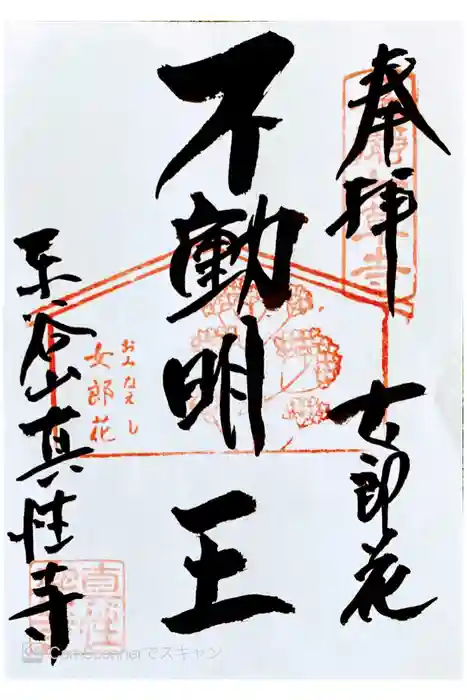 奉拝
女郎花
不動明王
おみなえし
女郎花
東谷山真性寺
CamScannerでスキャン